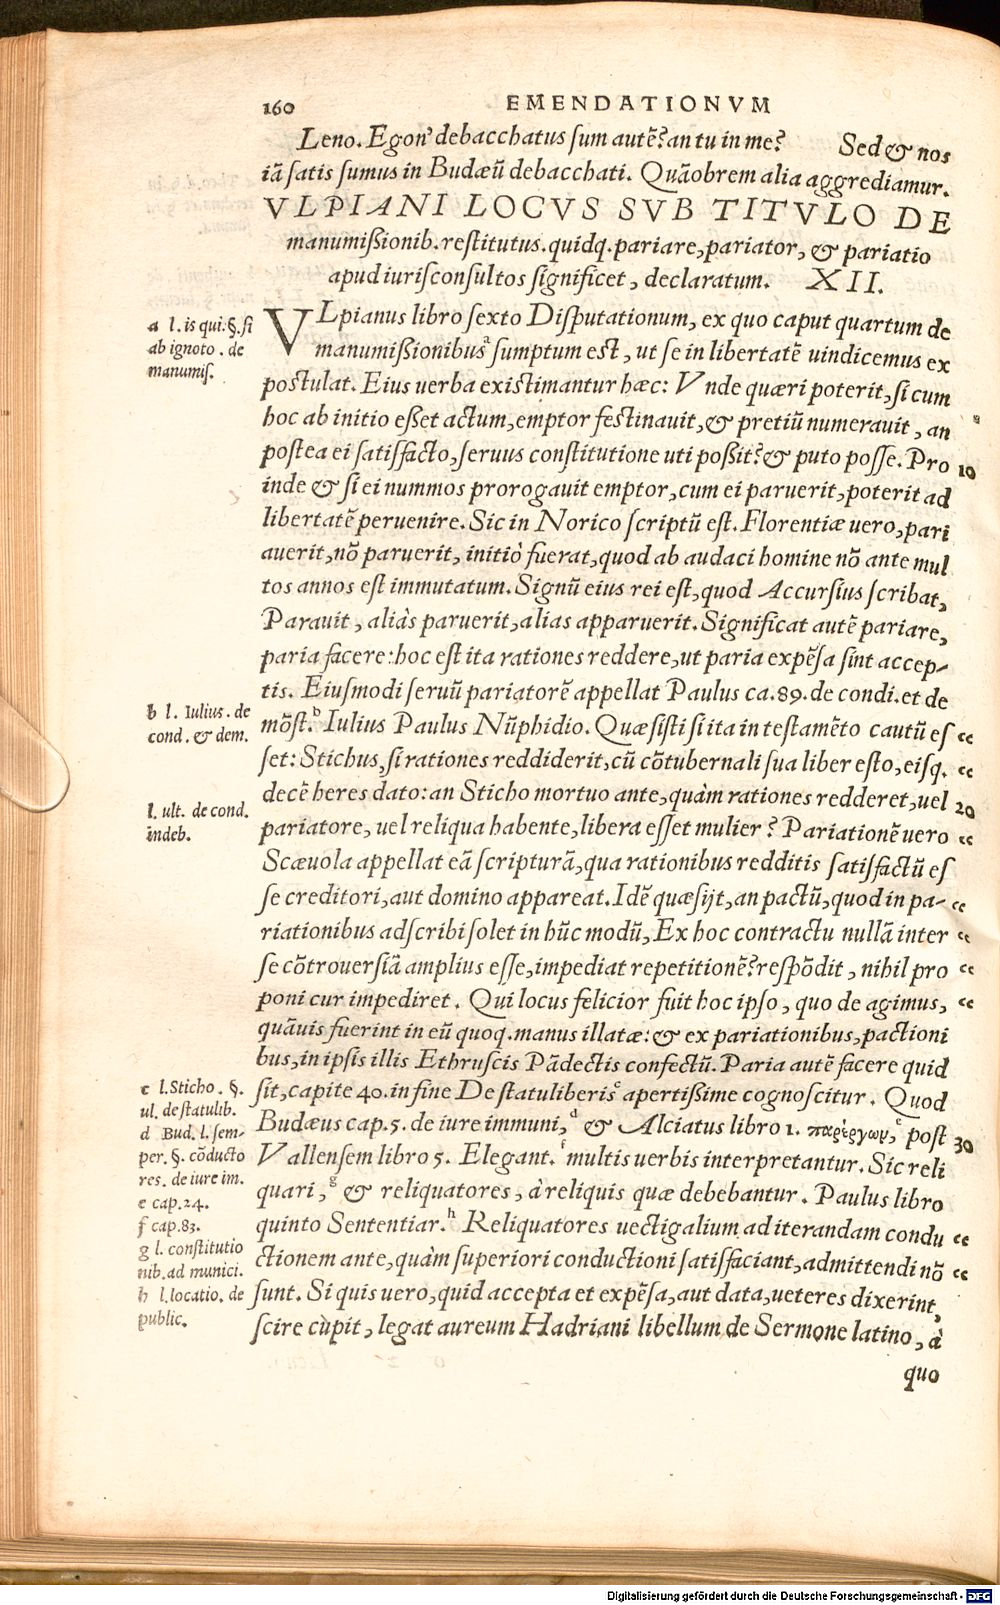 160 EMENDATIONVM
Leno. Egon' debacchatus sum autē? an tu in me? Sed & nos
iā satis sumus in Budæū debacchati. Quāobrem alia aggrediamur.
VLPIANI LOCVS SVB TITVLO DE
manumißionib. restitutus. quidq. pariare, pariator, & pariatio
apud iurisconsultos significet, declaratum. XII.
VLpianus libro sexto Disputationum, ex quo caput quartum de
manumißionibus a sumptum est, ut se in libertatē uindicemus ex
postulat. Eius uerba existimantur hæc: Vnde quæri poterit, si cum
hoc ab initio eßet actum, emptor festinauit, & pretiū numerauit, an
postea ei satisfacto, seruus constitutione uti poßit? & puto posse. Pro 10
inde & si ei nummos prorogauit emptor, cum ei paruerit, poterit ad
libertatē peruenire. Sic in Norico scriptū est. Florentiæ uero, pari
auerit, nō paruerit, initiò fuerat, quod ab audaci homine nō ante mul
tos annos est immutatum. Signū eius rei est, quod Accursius scribat,
Parauit, aliàs paruerit, alias apparuerit. Significat autē pariare,
paria facere: hoc est ita rationes reddere, ut paria expēsa sint accep-
tis. Eiusmodi seruū pariatorē appellat Paulus ca. 89. de condi. et de
mōst. b Iulius Paulus Nūphidio. Quæsisti si ita in testamēto cautū es “
set: Stichus, si rationes reddiderit, cū cōtubernali sua liber esto, eisq. “
decē heres dato: an Sticho mortuo ante, quàm rationes redderet, uel 20
pariatore, uel reliqua habente, libera esset mulier? Pariationē uero “
Scæuola appellat eā scripturā, qua rationibus redditis satisfactū es
se creditori, aut domino appareat. Idē quæsijt, an pactū, quod in pa- “
riationibus adscribi solet in hūc modū, Ex hoc contractu nullā inter “
se cōtrouersiā amplius esse, impediat repetitionē? respōdit, nihil pro “
poni cur impediret. Qui locus felicior fuit hoc ipso, quo de agimus, “
quāuis fuerint in eū quoq. manus illatæ: & ex pariationibus, pactioni
bus, in ipsis illis Ethruscis Pādectis confectū. Paria autē facere quid
sit, capite 40. in fine De statuliberis c apertißime cognoscitur. Quod
Budæus cap. 5. de iure immuni, d & Alciatus libro 1. παρέργων, e post 30
Vallensem libro 5. Elegant. f multis uerbis interpretantur. Sic reli
quari, g & reliquatores, à reliquis quæ debebantur. Paulus libro
quinto Sententiar. h Reliquatores uectigalium ad iterandam condu “
ctionem ante, quàm superiori conductioni satisfaciant, admittendi nō “
sunt. Si quis uero, quid accepta et expēsa, aut data, ueteres dixerint,
scire cùpit, legat aureum Hadriani libellum de Sermone latino, à
quo
a l. is qui. §. si
ab ignoto. de
manumis.
b l. Iulius. de
cond. & dem.
l. ult. de cond.
indeb.
c l. Sticho. §.
ul. de statulib.
d Bud. l. sem-
per. §. cōducto
res. de iure im.
e cap. 24.
f cap. 83.
g l. constitutio
nib. ad munici.
h l. locatio. de
public.
Digitalisierung gefördert durch die Deutsche Forschungsgemeinschaft - DFG